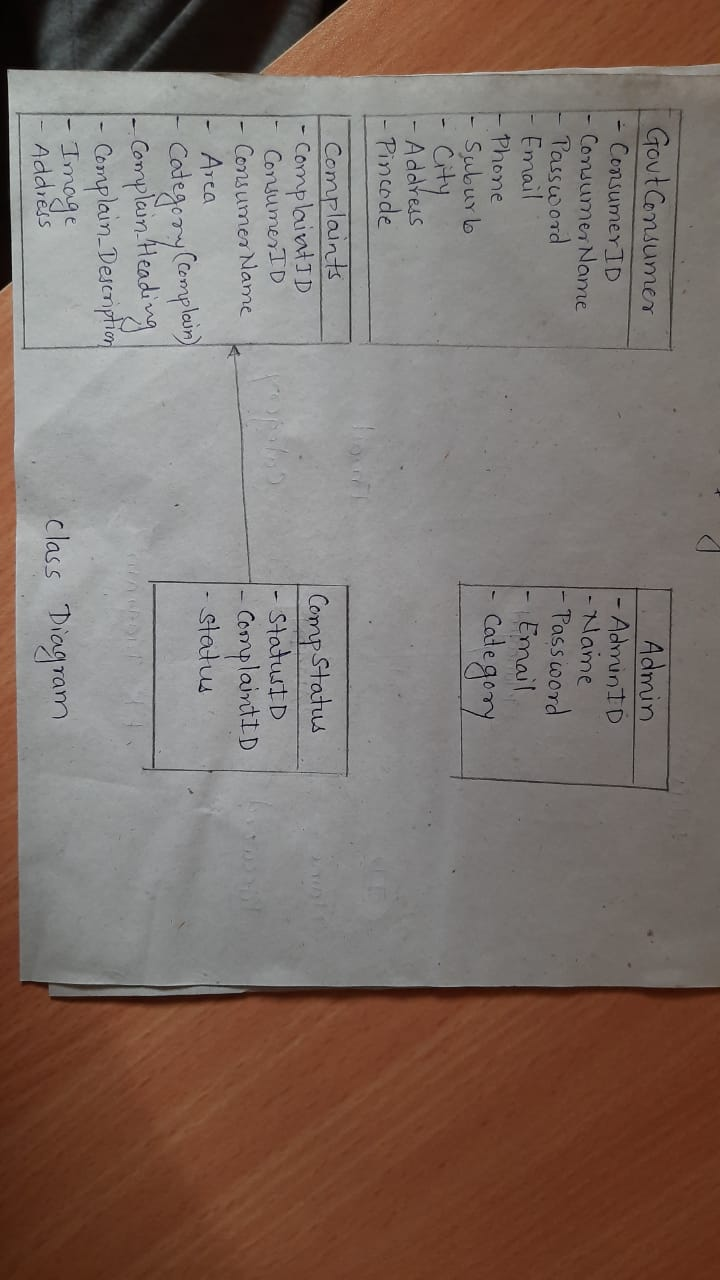 GovtConsumer
- ConsumerID
- ConsumerName
- Password
- Email
- Phone
- Suburb
- City
- Address
- Pincode
Admin
- AdminID
- Name
- Password
- Email
- Category
Complaints
- ComplaintID
- ConsumerID
- ConsumerName
- Area
- Category(complain)
- Complain_Heading
- Complain_Description
- Image
- Address
CompStatus
- StatusID
- ComplaintID
- Status
Class Diagram